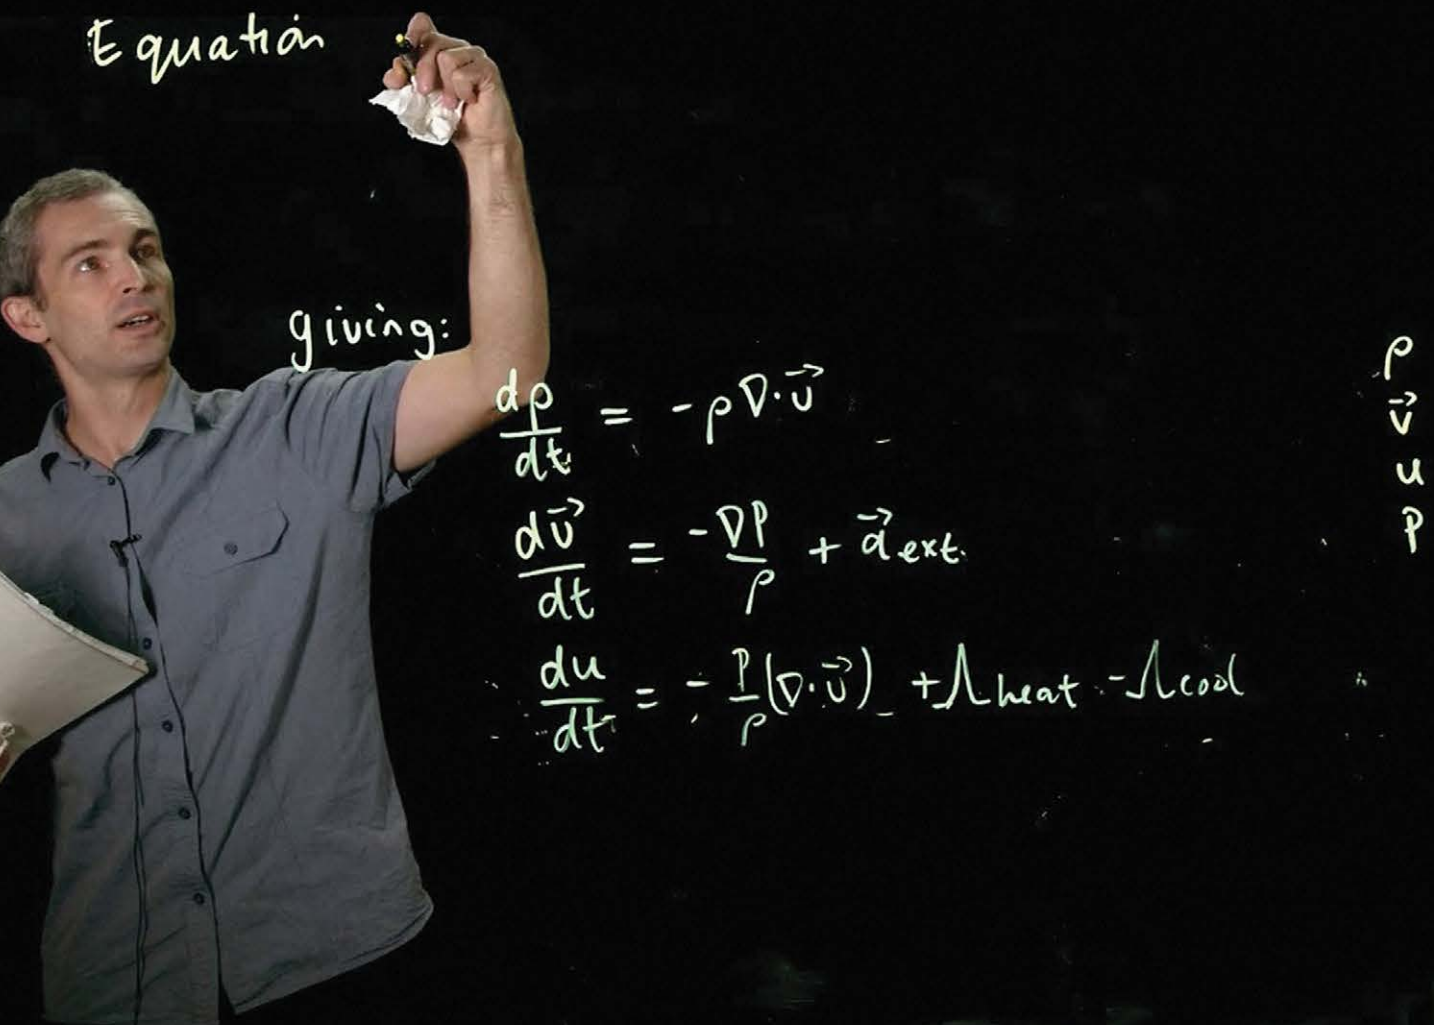 Equation
giving:
dρ/dt = -ρ∇·v⃗
dv⃗/dt = -∇P/ρ + a⃗ext.
du/dt = -P/ρ(∇·v⃗) + Λheat - Λcool
ρ
v⃗
u
P